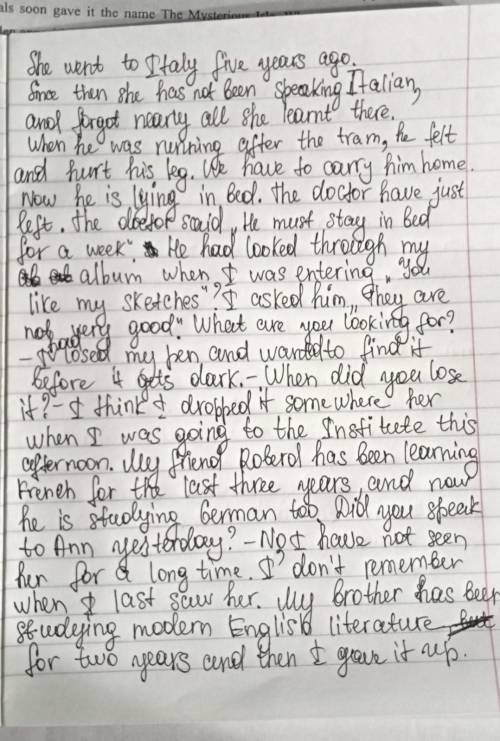 als soon gave it the name The Mysterious Isle.
She went to Italy five years ago.
Since then she has not been speaking Italian,
and forgot nearly all she learnt there.
When he was running after the tram, he felt
and hurt his leg. We have to carry him home.
Now he is lying in bed. The doctor have just
left. The doctor said „He must stay in bed
for a week". He had looked through my
album when I was entering „You
like my sketches"? I asked him „They are
not very good." What are you looking for?
- I had losed my pen and wanted to find it
before it gets dark. - When did you lose
it? - I think I dropped it somewhere her
when I was going to the Institute this
afternoon. My friend Roberol has been learning
French for the last three years, and now
he is studying German too. Did you speak
to Ann yesterday? - No, I have not seen
her for a long time. I don't remember
when I last saw her. My brother has been
studying modern English literature
for two years and then I gave it up.